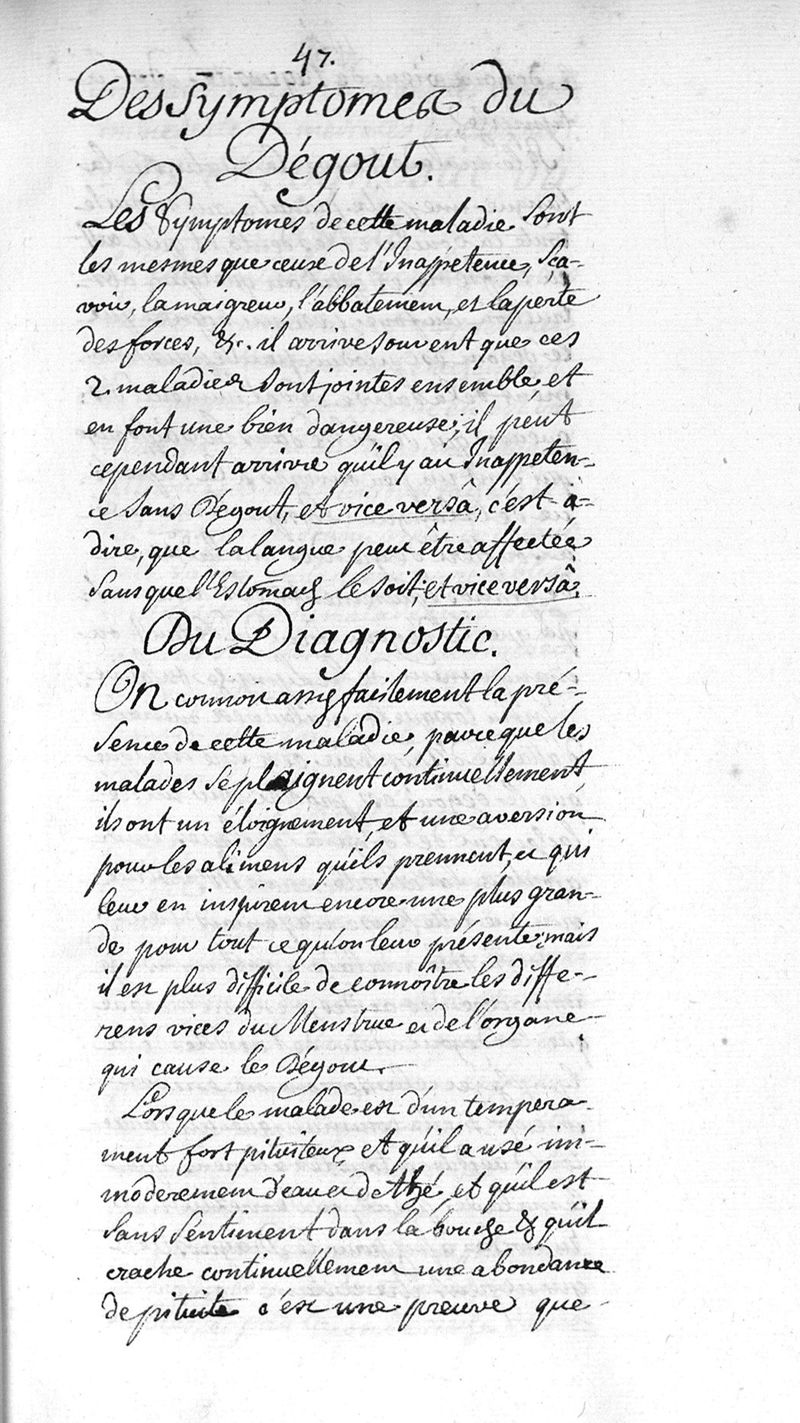 47.
Des Symptomes du
Dégout.
Les Symptomes de cette maladie Sont
les mesmes que ceux de l'Inappetence, Sça-
voir, la maigreur, l'abbatement, et la perte
des forces, &c. il arrive souvent que ces
2. maladies Sont jointes ensemble et
en font une bien dangereuse; il peut
cependant arriver qu'il y ait Inappeten-
ce Sans Dégout, et vice versâ, c'est à-
dire, que la langue peut être affectée
Sans que l'Estomach le soit, et vice versâ.
Du Diagnostic.
On connoit assez facilement la pré-
sence de cette maladie, parce que les
malades se plaignent continuellement,
ils ont un éloignement, et une aversion
pour les alimens qu'ils prennent, et qui
leur en inspirent encore une plus gran-
de pour tout ce qu'on leur présente; mais
il est plus difficile de connoître les diffe-
rens vices du Menstrue et de l'organe
qui cause le Dégout.
Lorsque le malade est d'un tempera-
ment fort pituiteux et qu'il a usé im-
moderement d'eau et de thé, et qu'il est
Sans Sentiment dans la bouche & qu'il
crache continuellement une abondance
de pituite c'est une preuve que